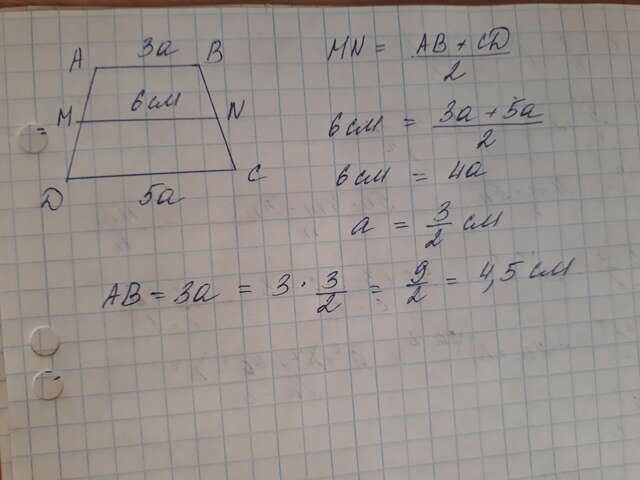 A 3a B
M 6 см N
D 5a C
MN = \frac{AB + CD}{2}
6 см = \frac{3a + 5a}{2}
6 см = 4a
a = \frac{3}{2} см
AB = 3a = 3 · \frac{3}{2} = \frac{9}{2} = 4,5 см